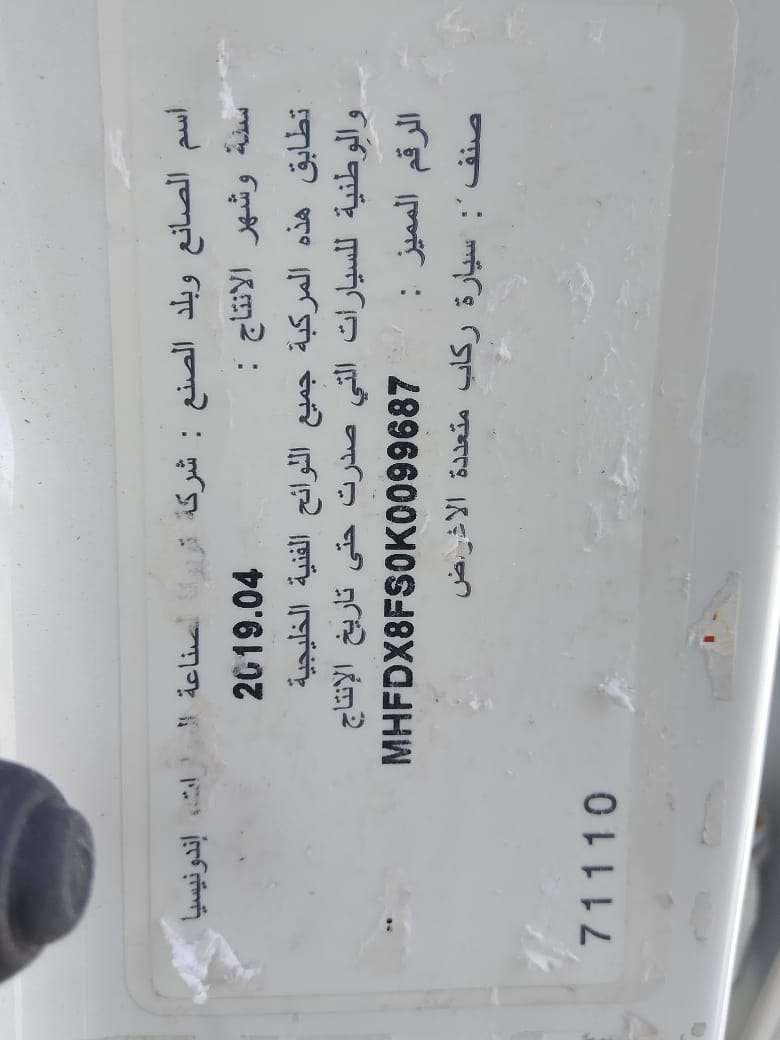 اسم الصانع وبلد الصنع : شركة لصناعة إندونيسيا
سنة وشهر الانتاج : 2019.04
تطابق هذه المركبة جميع اللوائح الفنية الخليجية
والوطنية للسيارات التي صدرت حتى تاريخ الإنتاج
الرقم المميز : MHFDX8FS0K0099687
صنف : سيارة ركاب متعددة الاغراض
71110